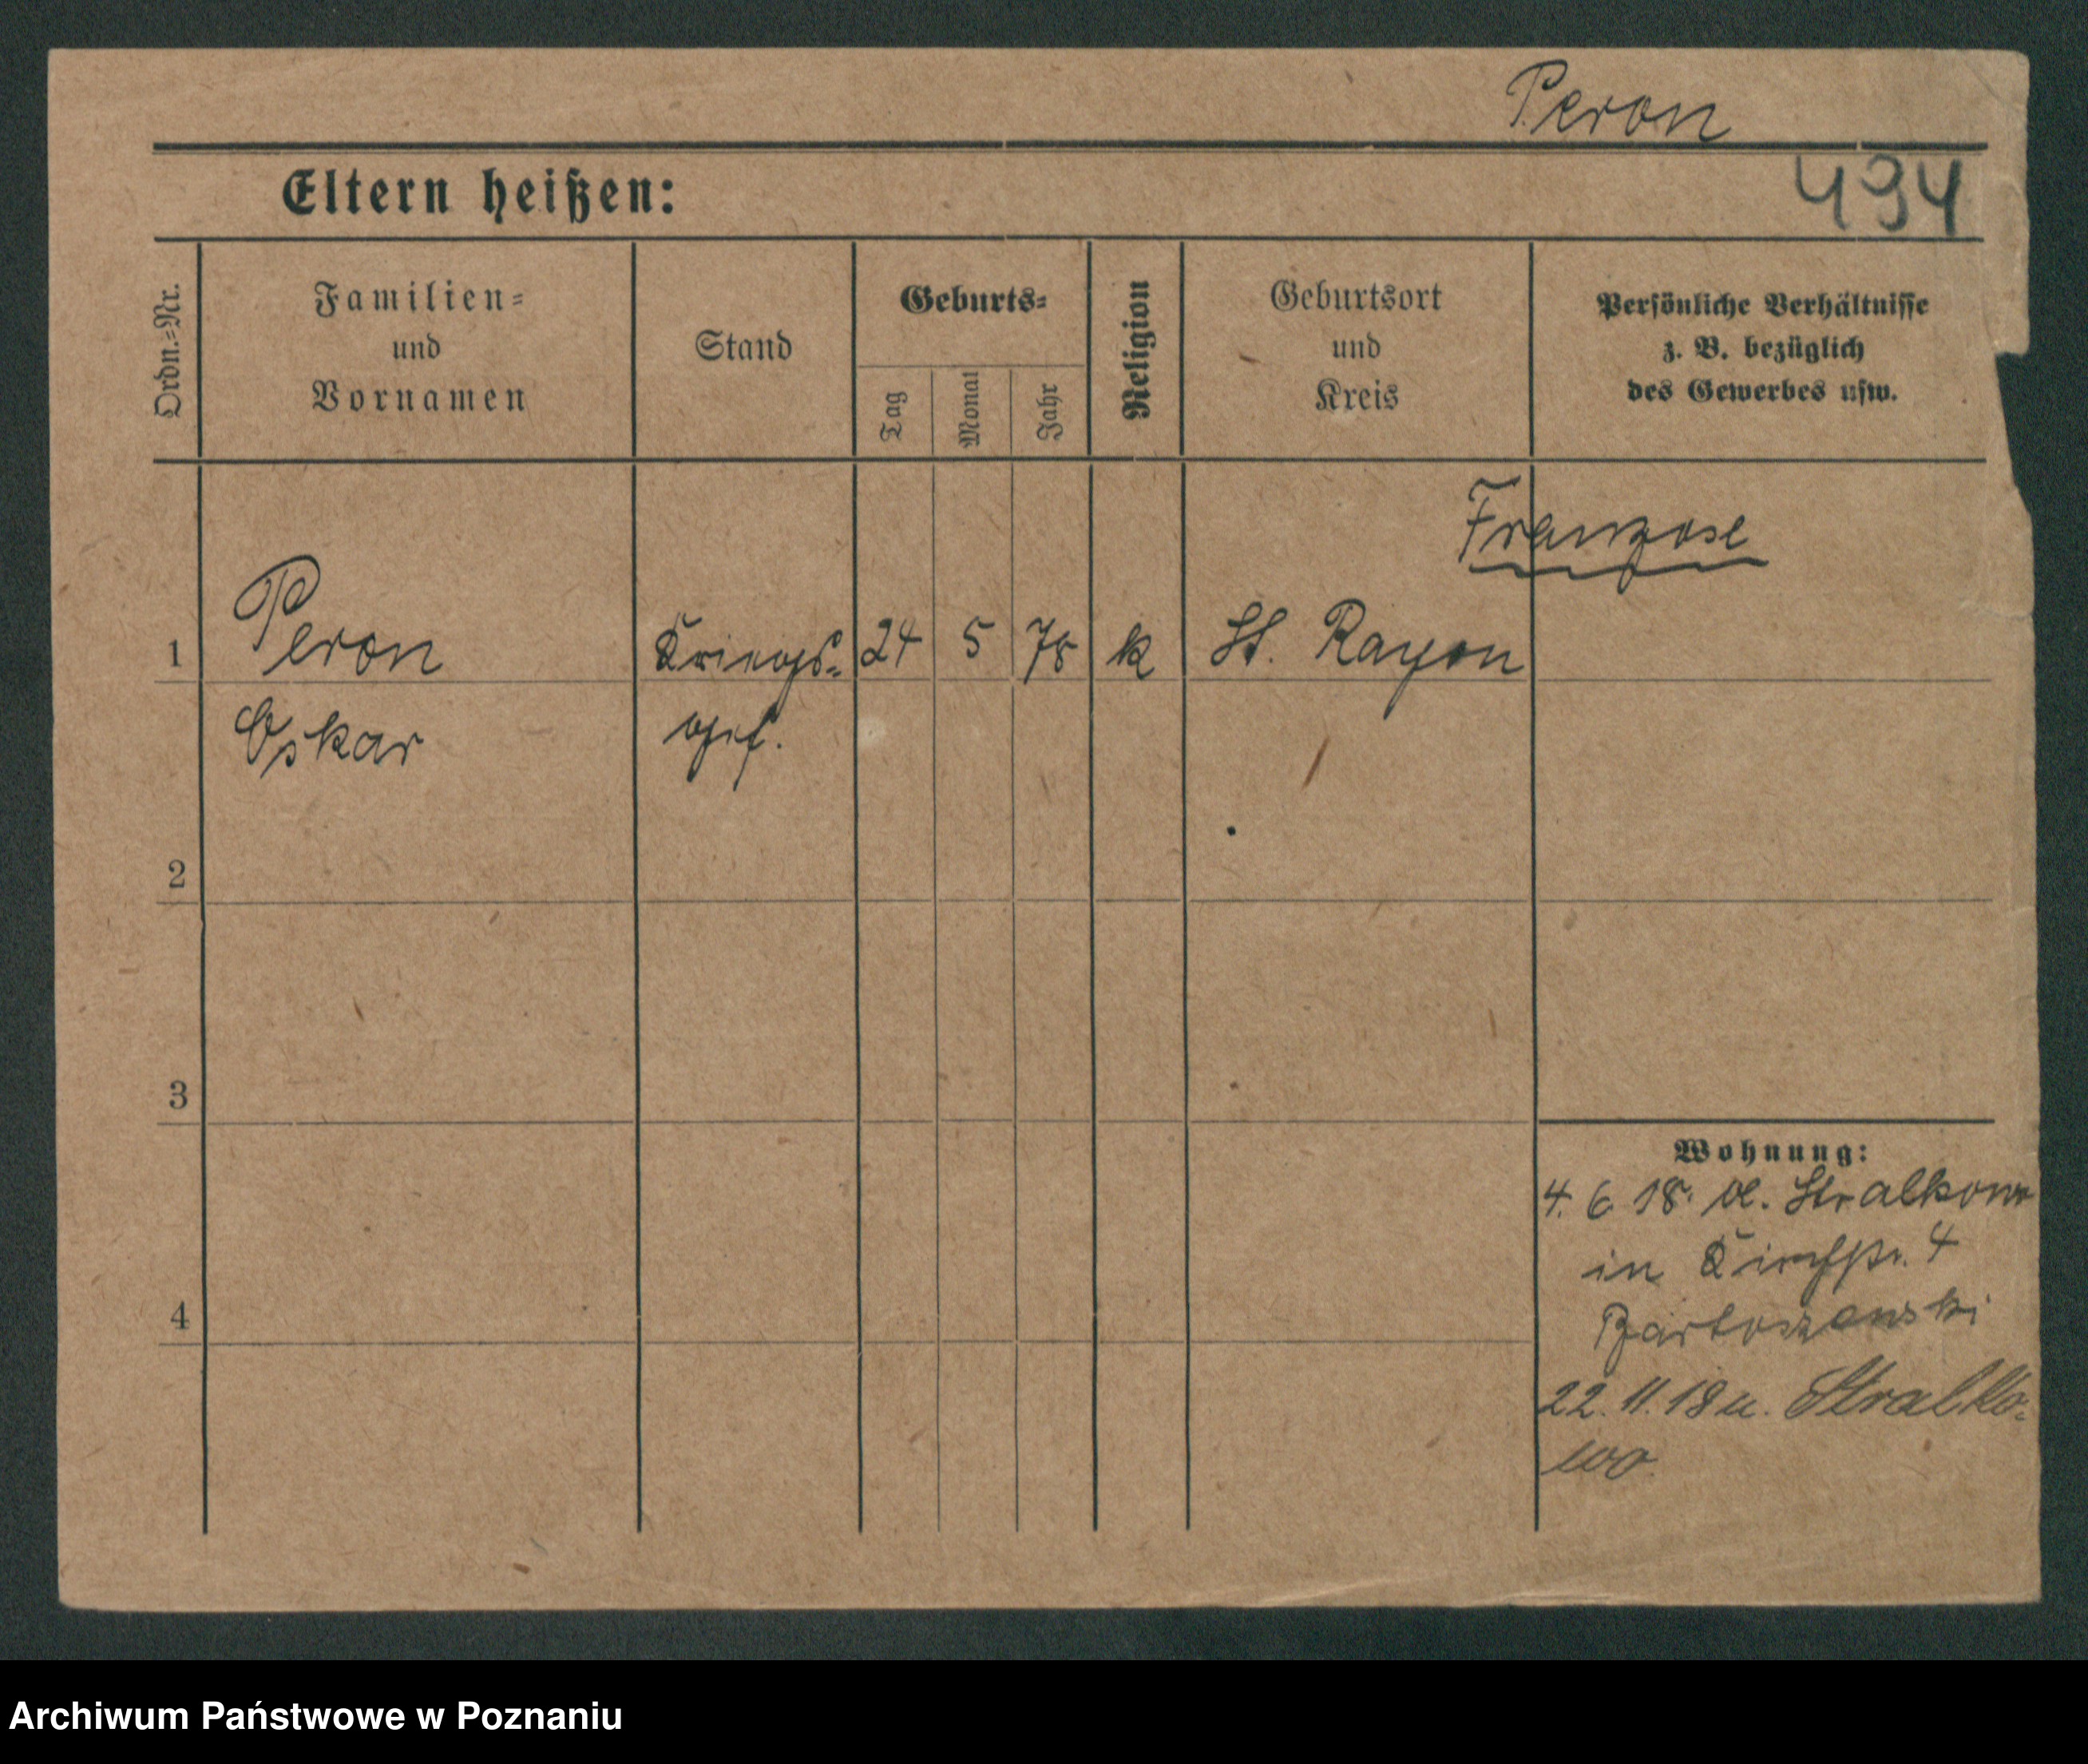 Peron
Eltern heißen:
494
Ordn.=Nr.
Familien=
und
Vornamen
Stand
Geburts=
Tag
Monat
Jahr
Religion
Geburtsort
und
Kreis
Persönliche Verhältnisse
z. B. bezüglich
des Gewerbes usw.
Franzose
1 Peron Kriegs= 24 5 78 k St. Rayon
Oskar gef.
2
3
4
Wohnung:
4. 6 18. v. Stralkowo
in Kirchstr. 4
Bartoszewski
22. 11. 18 n. Stralko=
wo
Archiwum Państwowe w Poznaniu